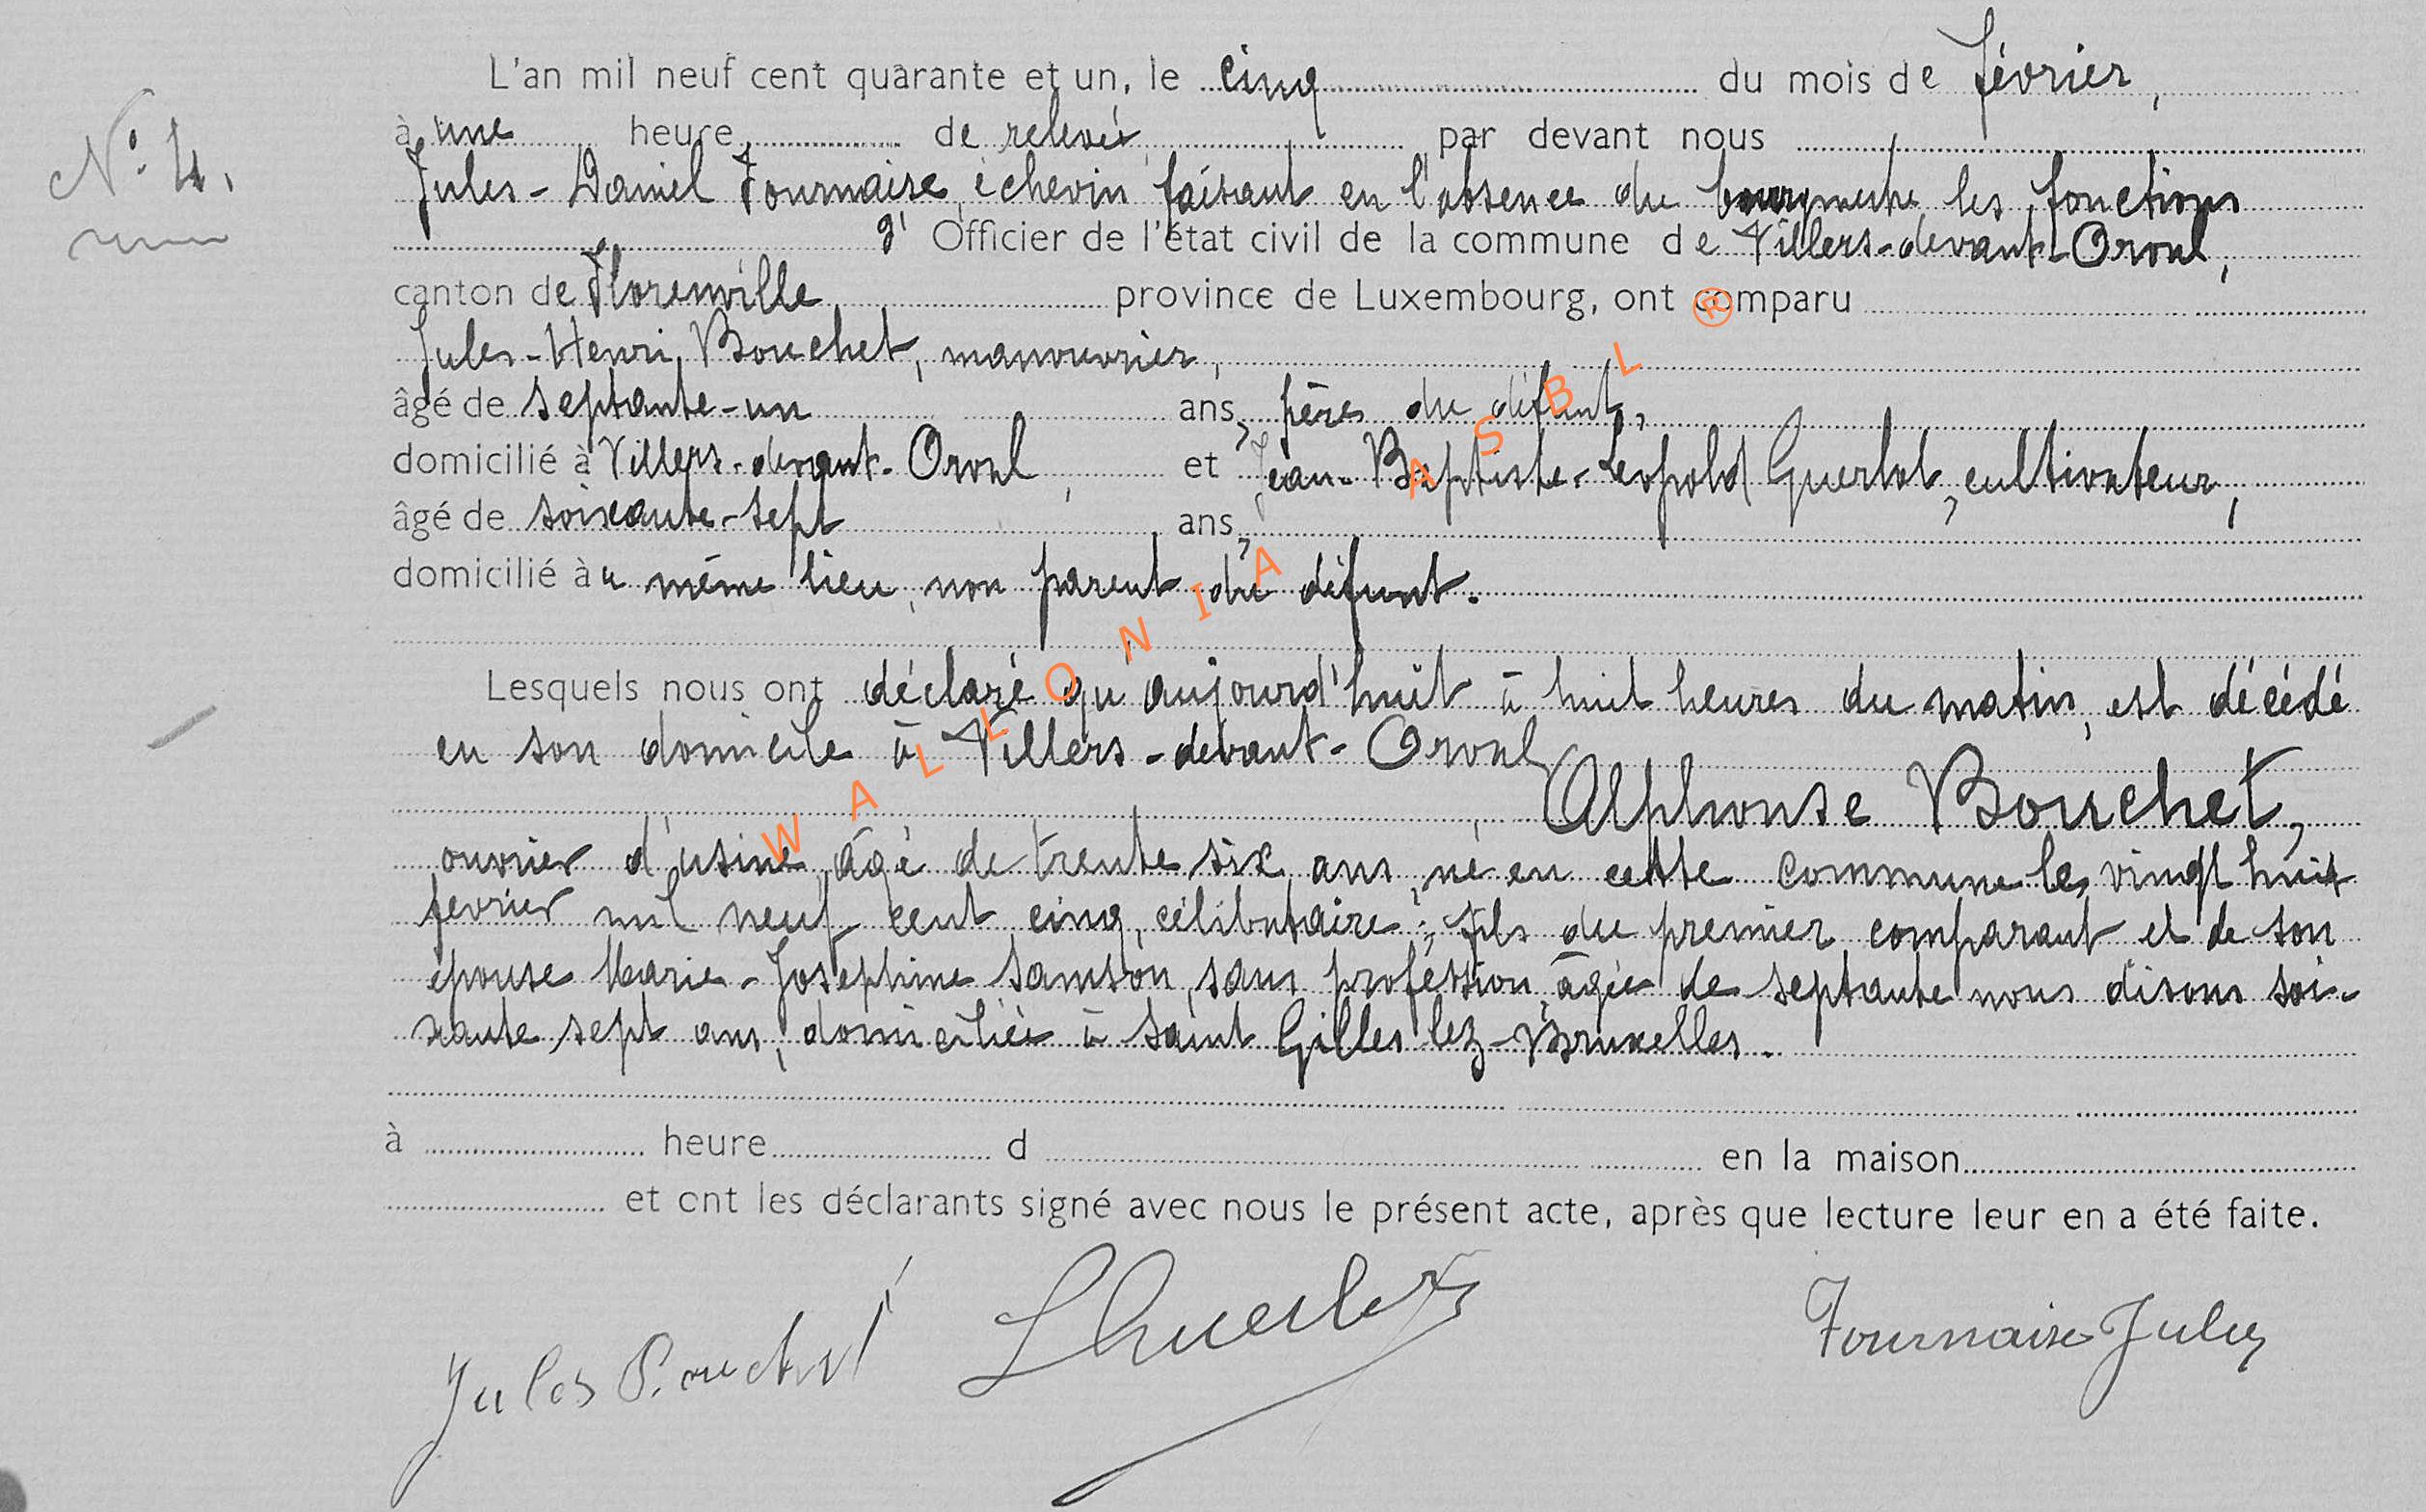 L'an mil neuf cent quarante et un, le cinq du mois de février,
N° 4.
à une heure de relevée par devant nous
Jules-Daniel Fournaise, échevin faisant en l'absence du bourgmestre les fonctions
d' Officier de l'état civil de la commune de Villers-devant-Orval,
canton de Florenville province de Luxembourg, ont comparu
Jules-Henri Bouchet, manouvrier,
âgé de septante-un ans, père du défunt,
domicilié à Villers-devant-Orval, et Jean-Baptiste-Léopold Guerlot, cultivateur,
âgé de soixante-sept ans,
domicilié au même lieu, non parent du défunt.
Lesquels nous ont déclaré qu'aujourd'huit à huit heures du matin, est décédé
en son domicile à Villers-devant-Orval
Alphonse Bouchet,
ouvrier d'usine, âgé de trente six ans, né en cette commune le vingt huit
fevrier mil neuf cent cinq, célibataire, fils du premier comparant et de son
épouse Marie-Joséphine Samson, sans profession, âgée de septante nous disons soi-
xante sept ans, domiciliée à Saint Gilles lez-Bruxelles.
à heure d en la maison
et ont les déclarants signé avec nous le présent acte, après que lecture leur en a été faite.
Jules Bouchet LGuerlot Fournaise Jules
WALLONIA ASBL ®